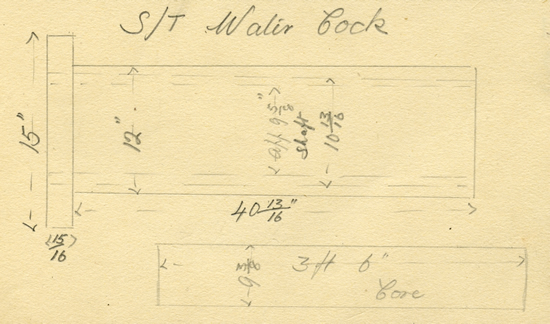 S/T Water Cock
15"
12"
9 3/8"
shaft
10 13/16
40 13/16"
15/16
9 3/8
3 ft 6"
Core